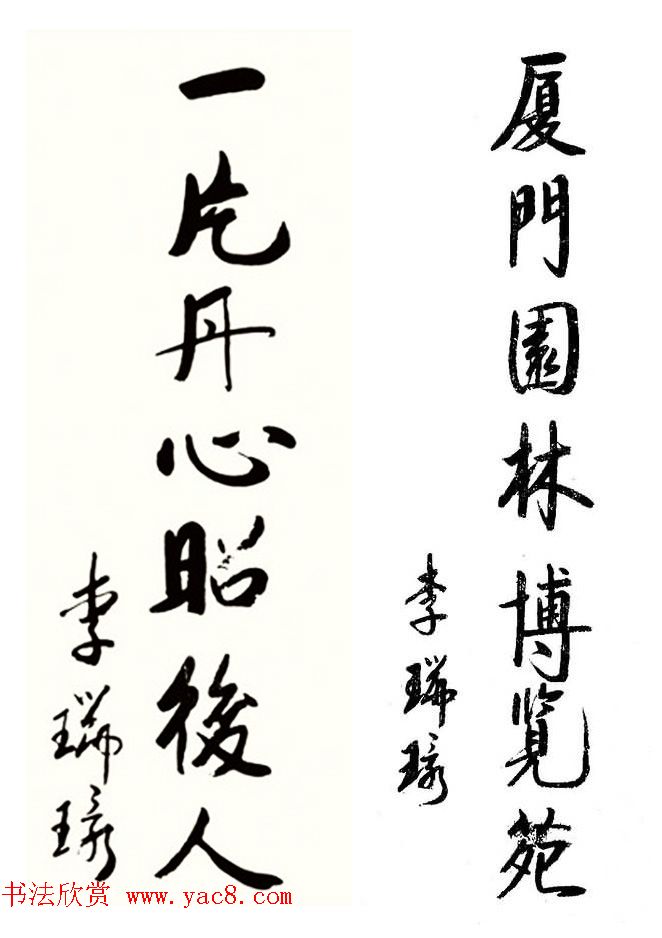 厦門園林博覽苑
李瑞環
一片丹心昭後人
李瑞環
书法欣赏 www.yac8.com